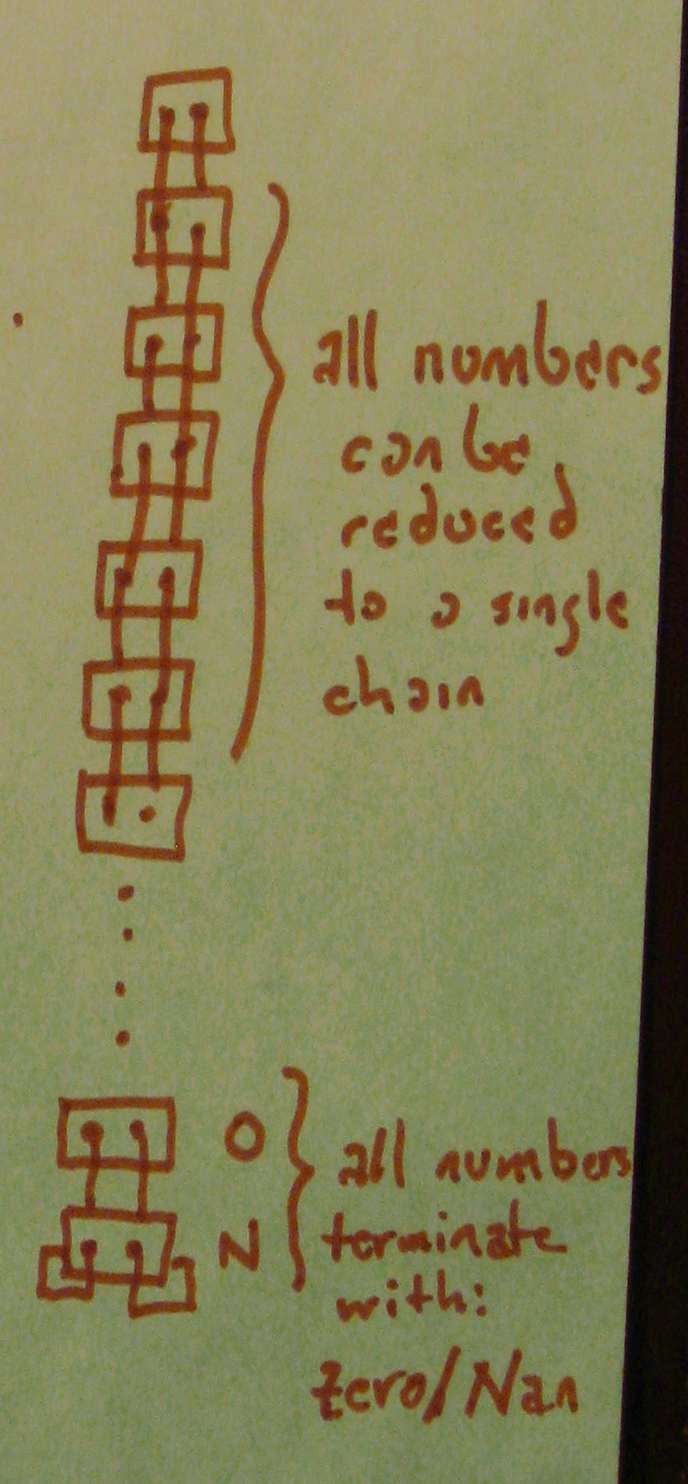 all numbers
can be
reduced
to a single
chain
O
N
all numbers
terminate
with:
Zero/Nan